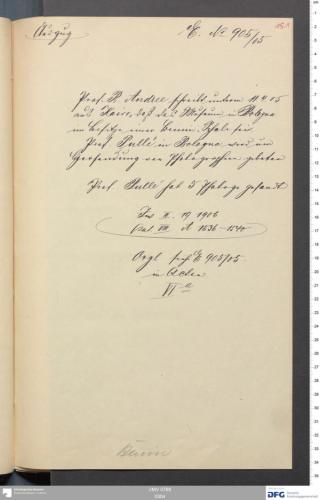 Auszug
E. No 905/05
151
Prof. R. Andree schreibt unterm 11.4.05
aus Kairo, daß das Museum in Bologna
im Besitze einer Benin-Schale sei
Prof. Pullé in Bologna wird um
Übersendung von Photographien gebeten
Prof Pullé hat 5 Photogr gesandt
II. 19 1906
VIII A 1536-1540
Vgl E 905/05
in Acten
VI a
Benin
0304
DFG